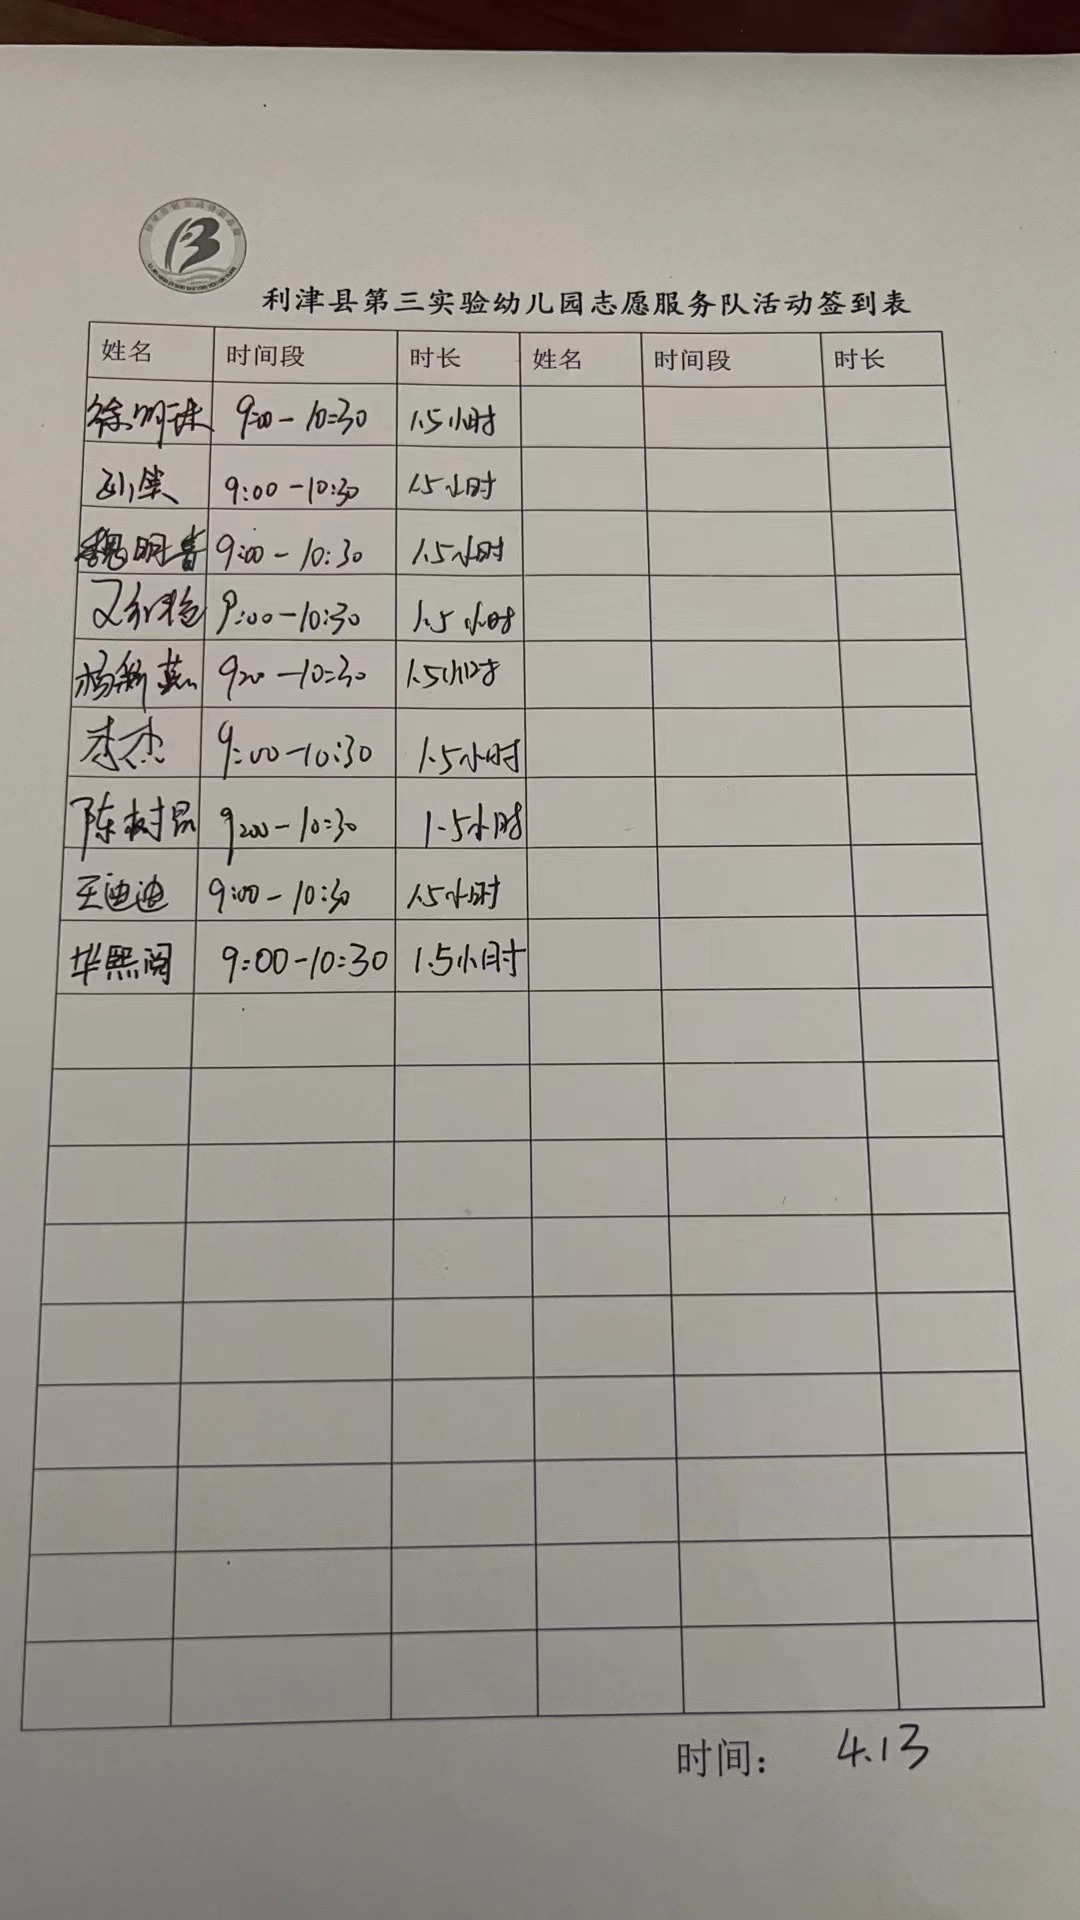 利津县第三实验幼儿园志愿服务队活动签到表
姓名 时间段 时长 姓名 时间段 时长
徐明珠 9:00-10:30 1.5小时
9:00-10:30 1.5小时
魏明春 9:00-10:30 1.5小时
9:00-10:30 1.5小时
杨新燕 9:00-10:30 1.5小时
李杰 9:00-10:30 1.5小时
陈树昆 9:00-10:30 1.5小时
王迪迪 9:00-10:30 1.5小时
毕熙阅 9:00-10:30 1.5小时
时间: 4.13